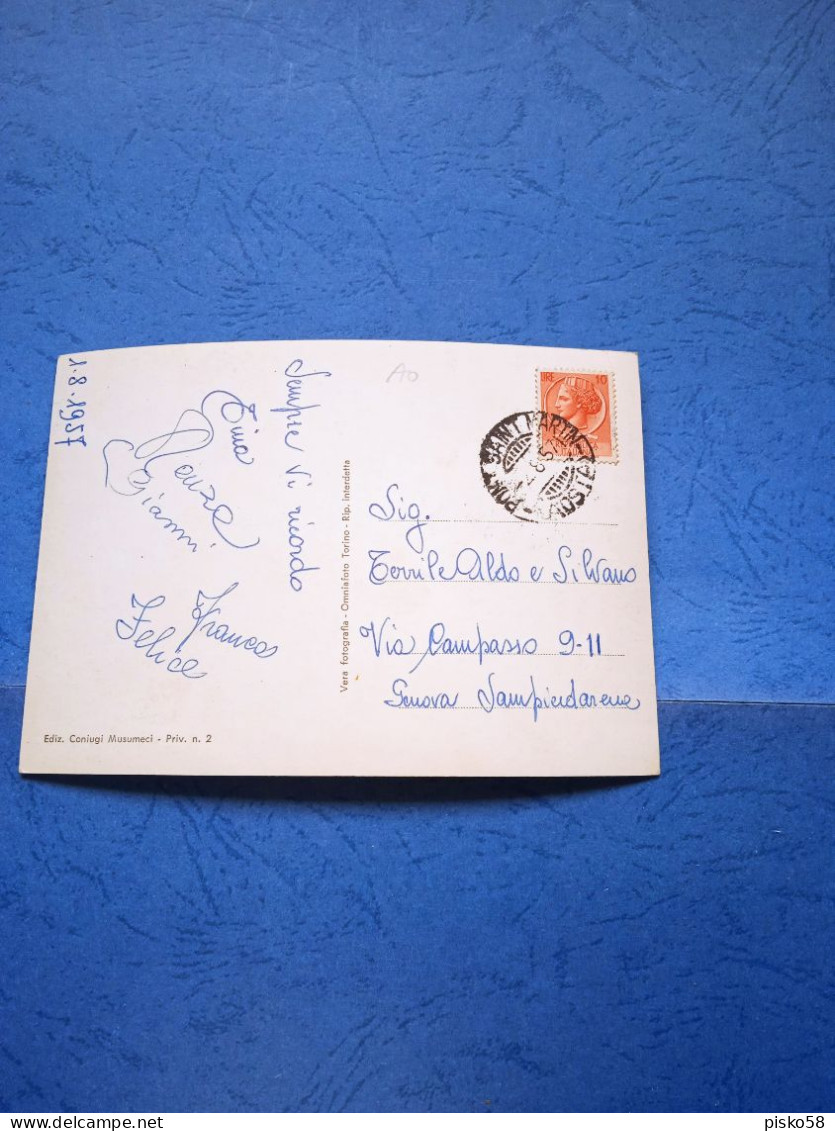 1.8.1957
Sempre vi ricordo
Tina
Renza
Gianni
Franca
Felice
AO
LIRE 10
PONT SAINT MARTIN
AOSTA
Sig.
Terrile Aldo e Silvano
Via Campasso 9-11
Genova Sampierdarena
Vera fotografia - Omniafoto Torino - Rip. interdetta
Ediz. Coniugi Musumeci - Priv. n. 2
pisko58